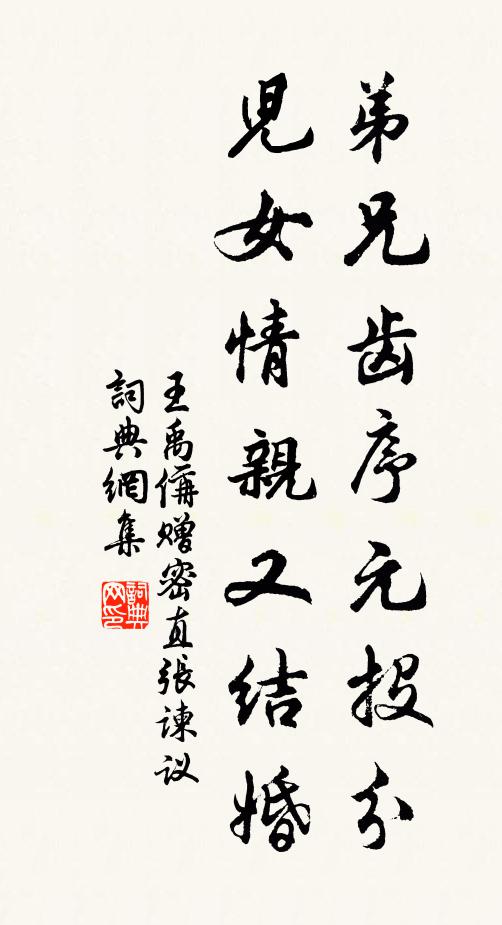 弟兄齿序元投分
兒女情親又结婚
王禹偁赠密直張諫议
詞典網集
詞典网印